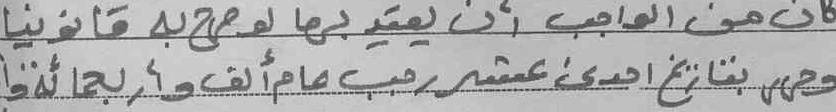 كان من الواجب أن يعتد بها لو صرح به قانونيا
وحرر بتاريخ احدى عشر رجب عام ألف وأربعمائة